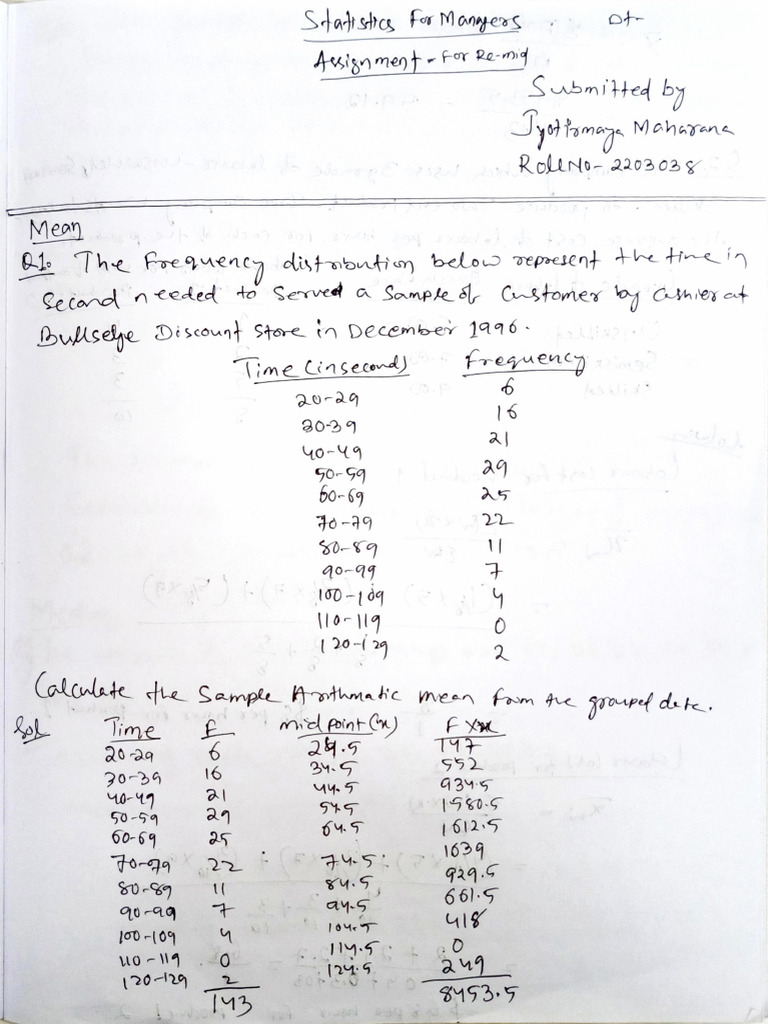 Statistics For Mangers Dt-
Assignment - For Re-mid
Submitted by
Jyotirmaya Maharana
Roll No- 2203038
Mean
Q1. The Frequency distribution below represent the time in
second needed to served a sample of Customer by Cashier at
Bullseye Discount store in December 1996.
Time (insecond) Frequency
20-29 6
30-39 16
40-49 21
50-59 29
60-69 25
70-79 22
80-89 11
90-99 7
100-109 4
110-119 0
120-129 2
Calculate the Sample Arithmatic mean from the grouped data.
Sol Time F mid point (x) F x x
20-29 6 24.5 147
30-39 16 34.5 552
40-49 21 44.5 934.5
50-59 29 54.5 1580.5
60-69 25 64.5 1612.5
70-79 22 74.5 1639
80-89 11 84.5 929.5
90-99 7 94.5 661.5
100-109 4 104.5 418
110-119 0 114.5 0
120-129 2 124.5 249
143 8453.5